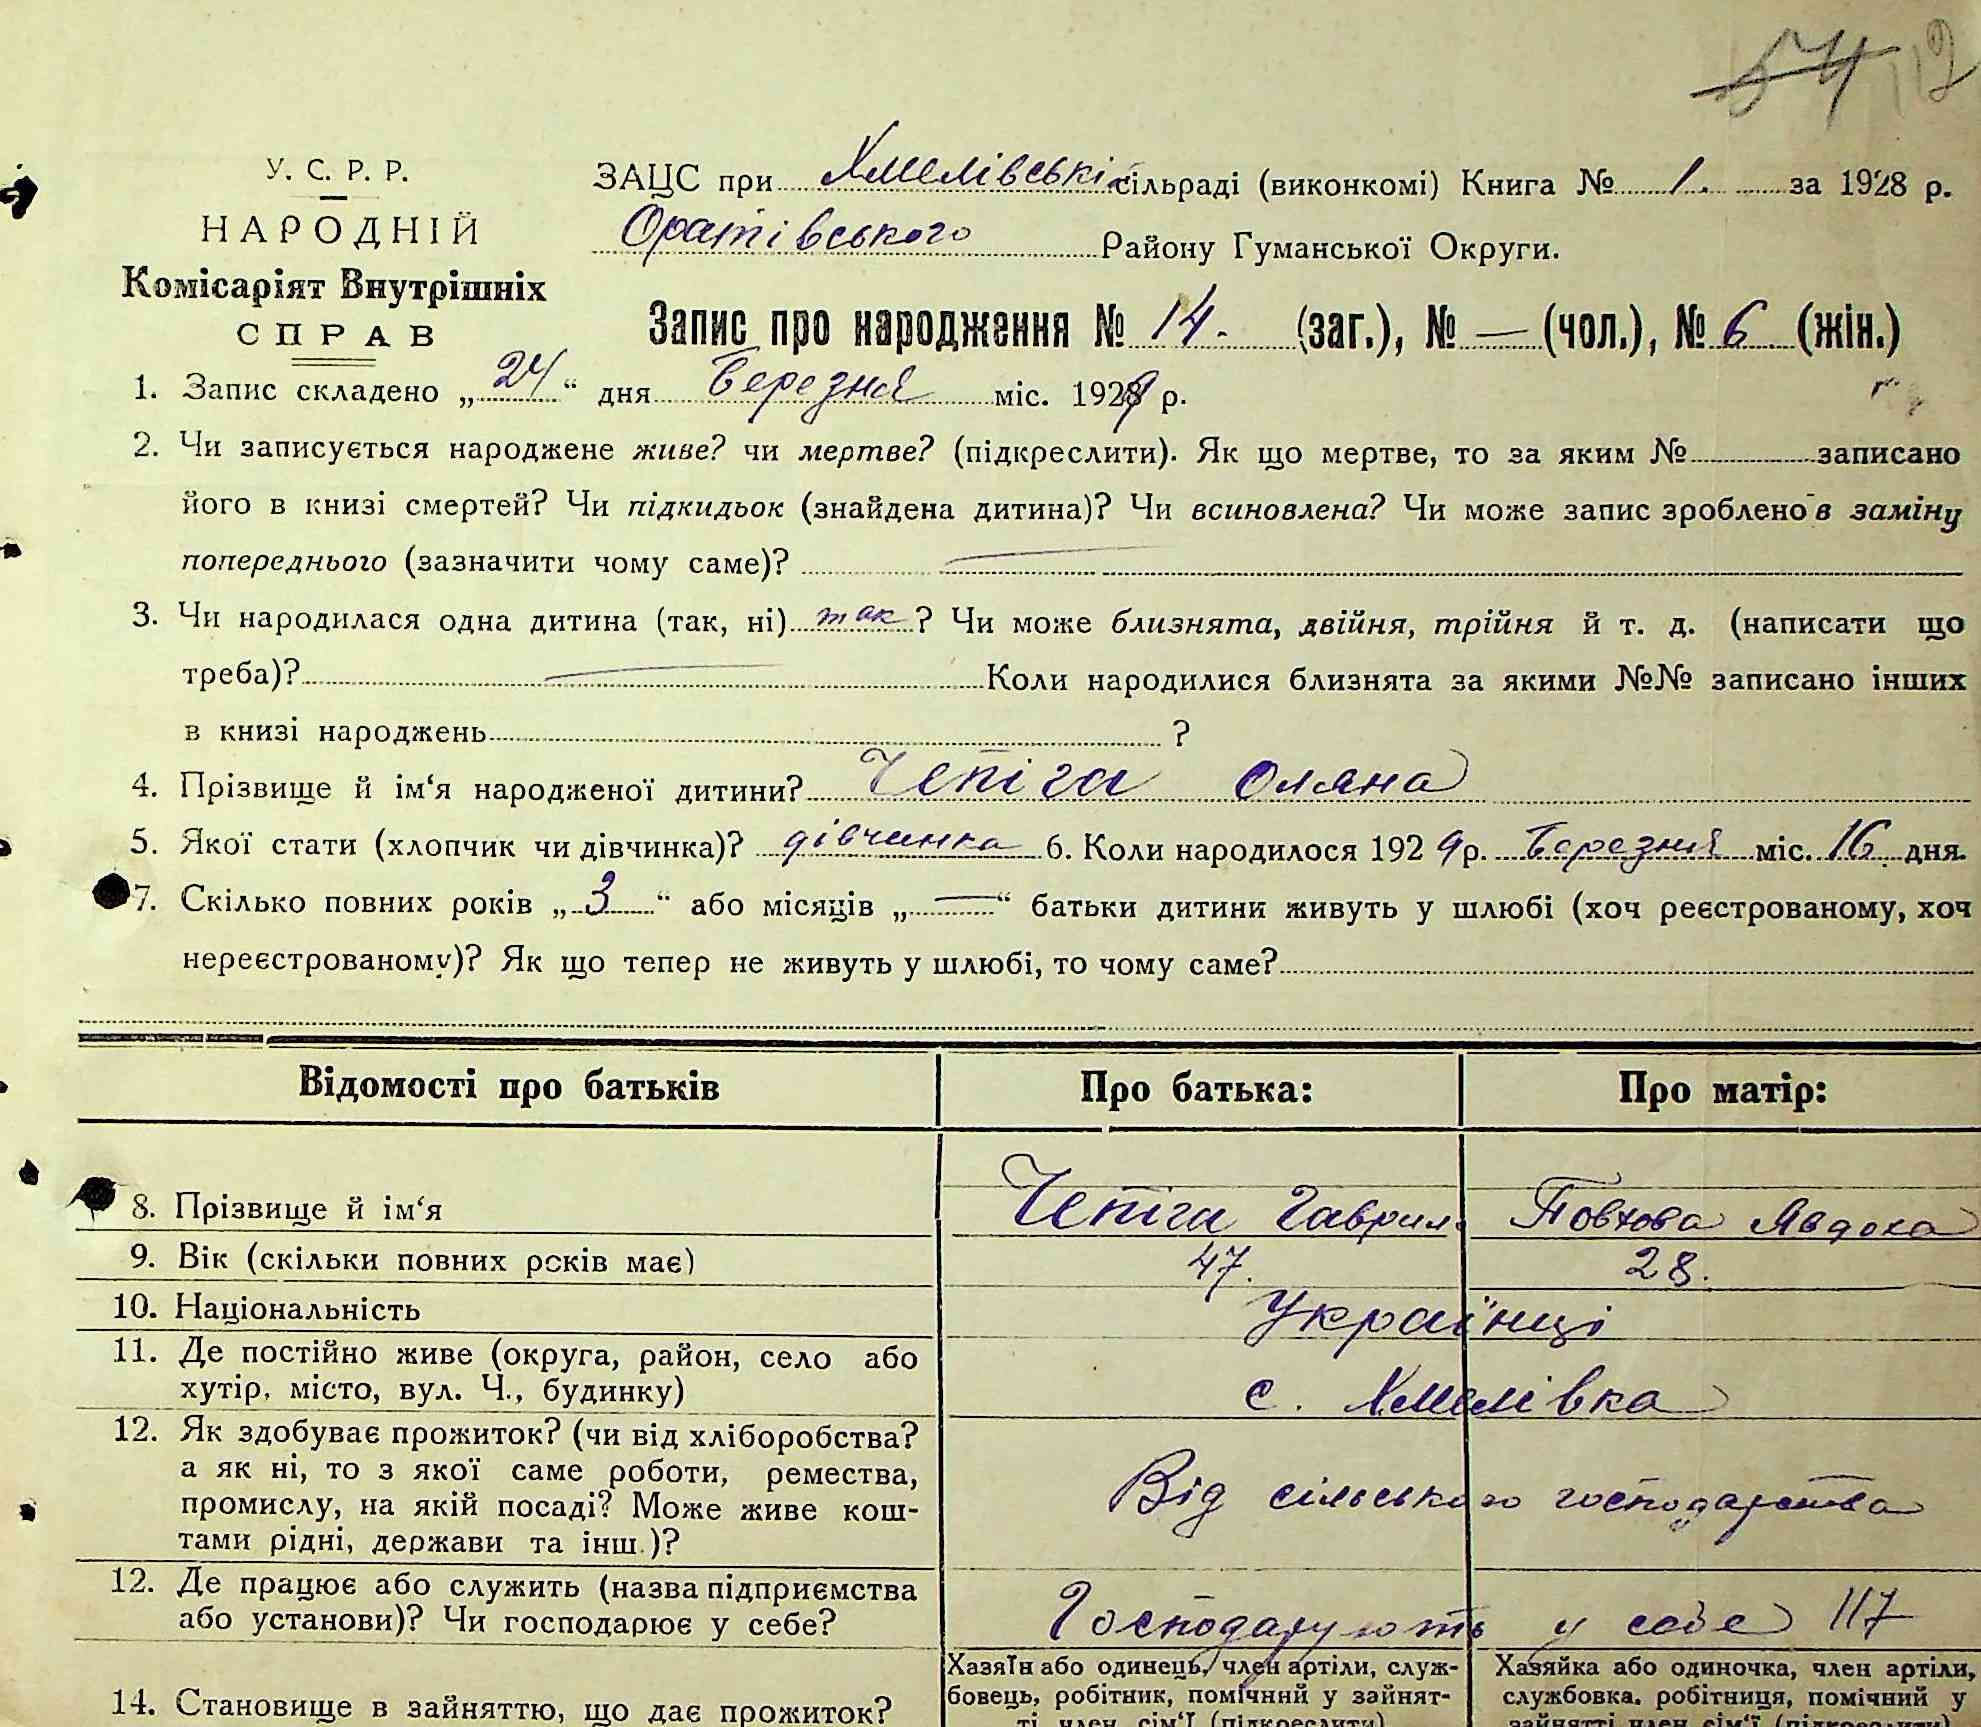 54 112
У. С. Р. Р.
НАРОДНІЙ
Комісаріят Внутрішніх
СПРАВ
ЗАЦС при Хмелівські сільраді (виконкомі) Книга № 1. за 1928 р.
Оратівського Району Гуманської Округи.
Запис про народження № 14. (заг.), № — (чол.), № 6 (жін.)
1. Запис складено „24“ дня Березня міс. 1929 р.
2. Чи записується народжене живе? чи мертве? (підкреслити). Як що мертве, то за яким № записано
його в книзі смертей? Чи підкидьок (знайдена дитина)? Чи всиновлена? Чи може запис зроблено в заміну
попереднього (зазначити чому саме)? —
3. Чи народилася одна дитина (так, ні) так? Чи може близнята, двійня, трійня й т. д. (написати що
треба)? — Коли народилися близнята за якими №№ записано інших
в книзі народжень ?
4. Прізвище й ім‘я народженої дитини? Чепіга Оляна
5. Якої стати (хлопчик чи дівчинка)? дівчинка 6. Коли народилося 1929 р. Березня міс. 16 дня.
7. Скілько повних років „3“ або місяців „—“ батьки дитини живуть у шлюбі (хоч реєстрованому, хоч
нереєстрованому)? Як що тепер не живуть у шлюбі, то чому саме?
Відомості про батьків Про батька: Про матір:
8. Прізвище й ім‘я Чепіга Гаврил Повхова Явдоха
9. Вік (скільки повних років має) 47. 28.
10. Національність Українці
11. Де постійно живе (округа, район, село або
хутір, місто, вул. Ч., будинку) с. Хмелівка
12. Як здобуває прожиток? (чи від хліборобства?
а як ні, то з якої саме роботи, ремества,
промислу, на якій посаді? Може живе кош-
тами рідні, держави та інш.)? Від сільського господарства
12. Де працює або служить (назва підприємства
або установи)? Чи господарює у себе? Господарують у себе 117
14. Становище в зайняттю, що дає прожиток?
Хазяїн або одинець, член артіли, служ-
бовець, робітник, помічний у зайнят-
ті член сім‘ї (підкреслити)
Хазяйка або одиночка, член артіли,
службовка, робітниця, помічний у
зайнятті член сім‘ї (підкреслити)